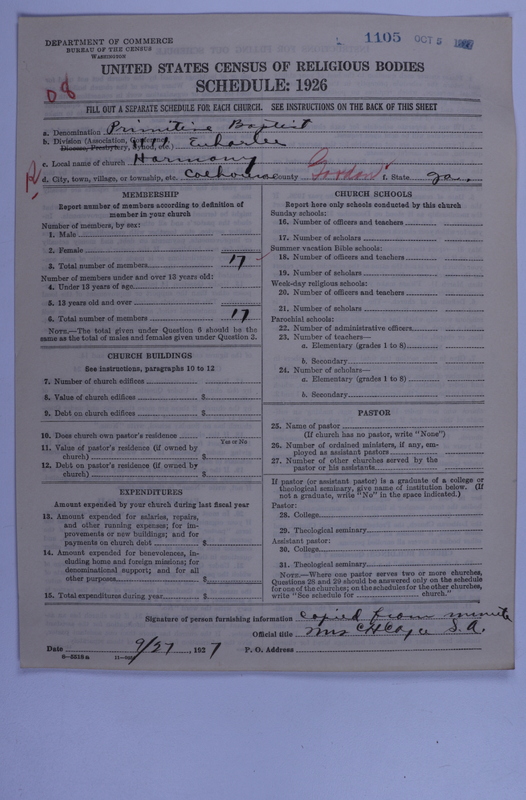 1105 OCT 5
DEPARTMENT OF COMMERCE
BUREAU OF THE CENSUS
WASHINGTON
08
UNITED STATES CENSUS OF RELIGIOUS BODIES
SCHEDULE: 1926
FILL OUT A SEPARATE SCHEDULE FOR EACH CHURCH. SEE INSTRUCTIONS ON THE BACK OF THIS SHEET
a. Denomination Primitive Baptist
b. Division (Association, Conference,
Diocese, Presbytery, Synod, etc.) Euharlee
c. Local name of church Harmony
R
d. City, town, village, or township, etc. Calhoun County Gordon f. State Ga.
MEMBERSHIP
Report number of members according to definition of
member in your church
Number of members, by sex:
1. Male
2. Female
3. Total number of members 17
Number of members under and over 13 years old:
4. Under 13 years of age
5. 13 years old and over
6. Total number of members 17
NOTE.—The total given under Question 6 should be the
same as the total of males and females given under Question 2.
CHURCH BUILDINGS
See instructions, paragraphs 10 to 12
7. Number of church edifices
8. Value of church edifices $
9. Debt on church edifices $
10. Does church own pastor's residence
Yes or No
11. Value of pastor's residence (if owned by
church) $
12. Debt on pastor's residence (if owned by
church) $
EXPENDITURES
Amount expended by your church during last fiscal year
13. Amount expended for salaries, repairs,
and other running expenses; for im-
provements or new buildings; and for
payments on church debt $
14. Amount expended for benevolences, in-
cluding home and foreign missions; for
denominational support; and for all
other purposes $
15. Total expenditures during year $
CHURCH SCHOOLS
Report here only schools conducted by this church
Sunday schools:
16. Number of officers and teachers
17. Number of scholars
Summer vacation Bible schools:
18. Number of officers and teachers
19. Number of scholars
Week-day religious schools:
20. Number of officers and teachers
21. Number of scholars
Parochial schools:
22. Number of administrative officers
23. Number of teachers—
a. Elementary (grades 1 to 8)
b. Secondary
24. Number of scholars—
a. Elementary (grades 1 to 8)
b. Secondary
PASTOR
25. Name of pastor
(If church has no pastor, write "None")
26. Number of ordained ministers, if any, em-
ployed as assistant pastors
27. Number of other churches served by the
pastor or his assistants
If pastor (or assistant pastor) is a graduate of a college or
theological seminary, give name of institution below. (If
not a graduate, write "No" in the space indicated.)
Pastor:
28. College
29. Theological seminary
Assistant pastor:
30. College
31. Theological seminary
NOTE.—Where one pastor serves two or more churches,
Questions 28 and 29 should be answered only on the schedule
for one of the churches; on the schedules for the other churches,
write "See schedule for church."
Signature of person furnishing information Copied from minute
Official title Mrs S. A.
Date 9/27 1927 P. O. Address